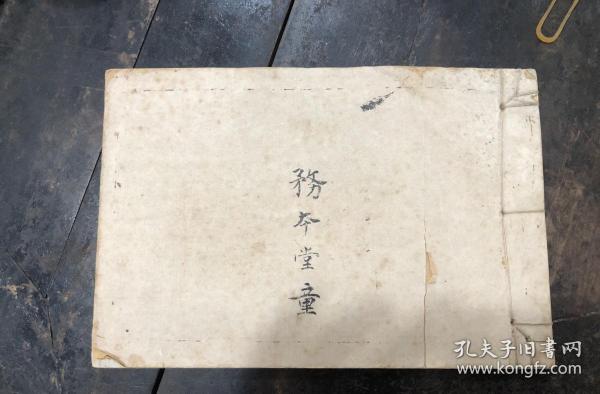 務本堂童
孔夫子旧書网
www.kongfz.com